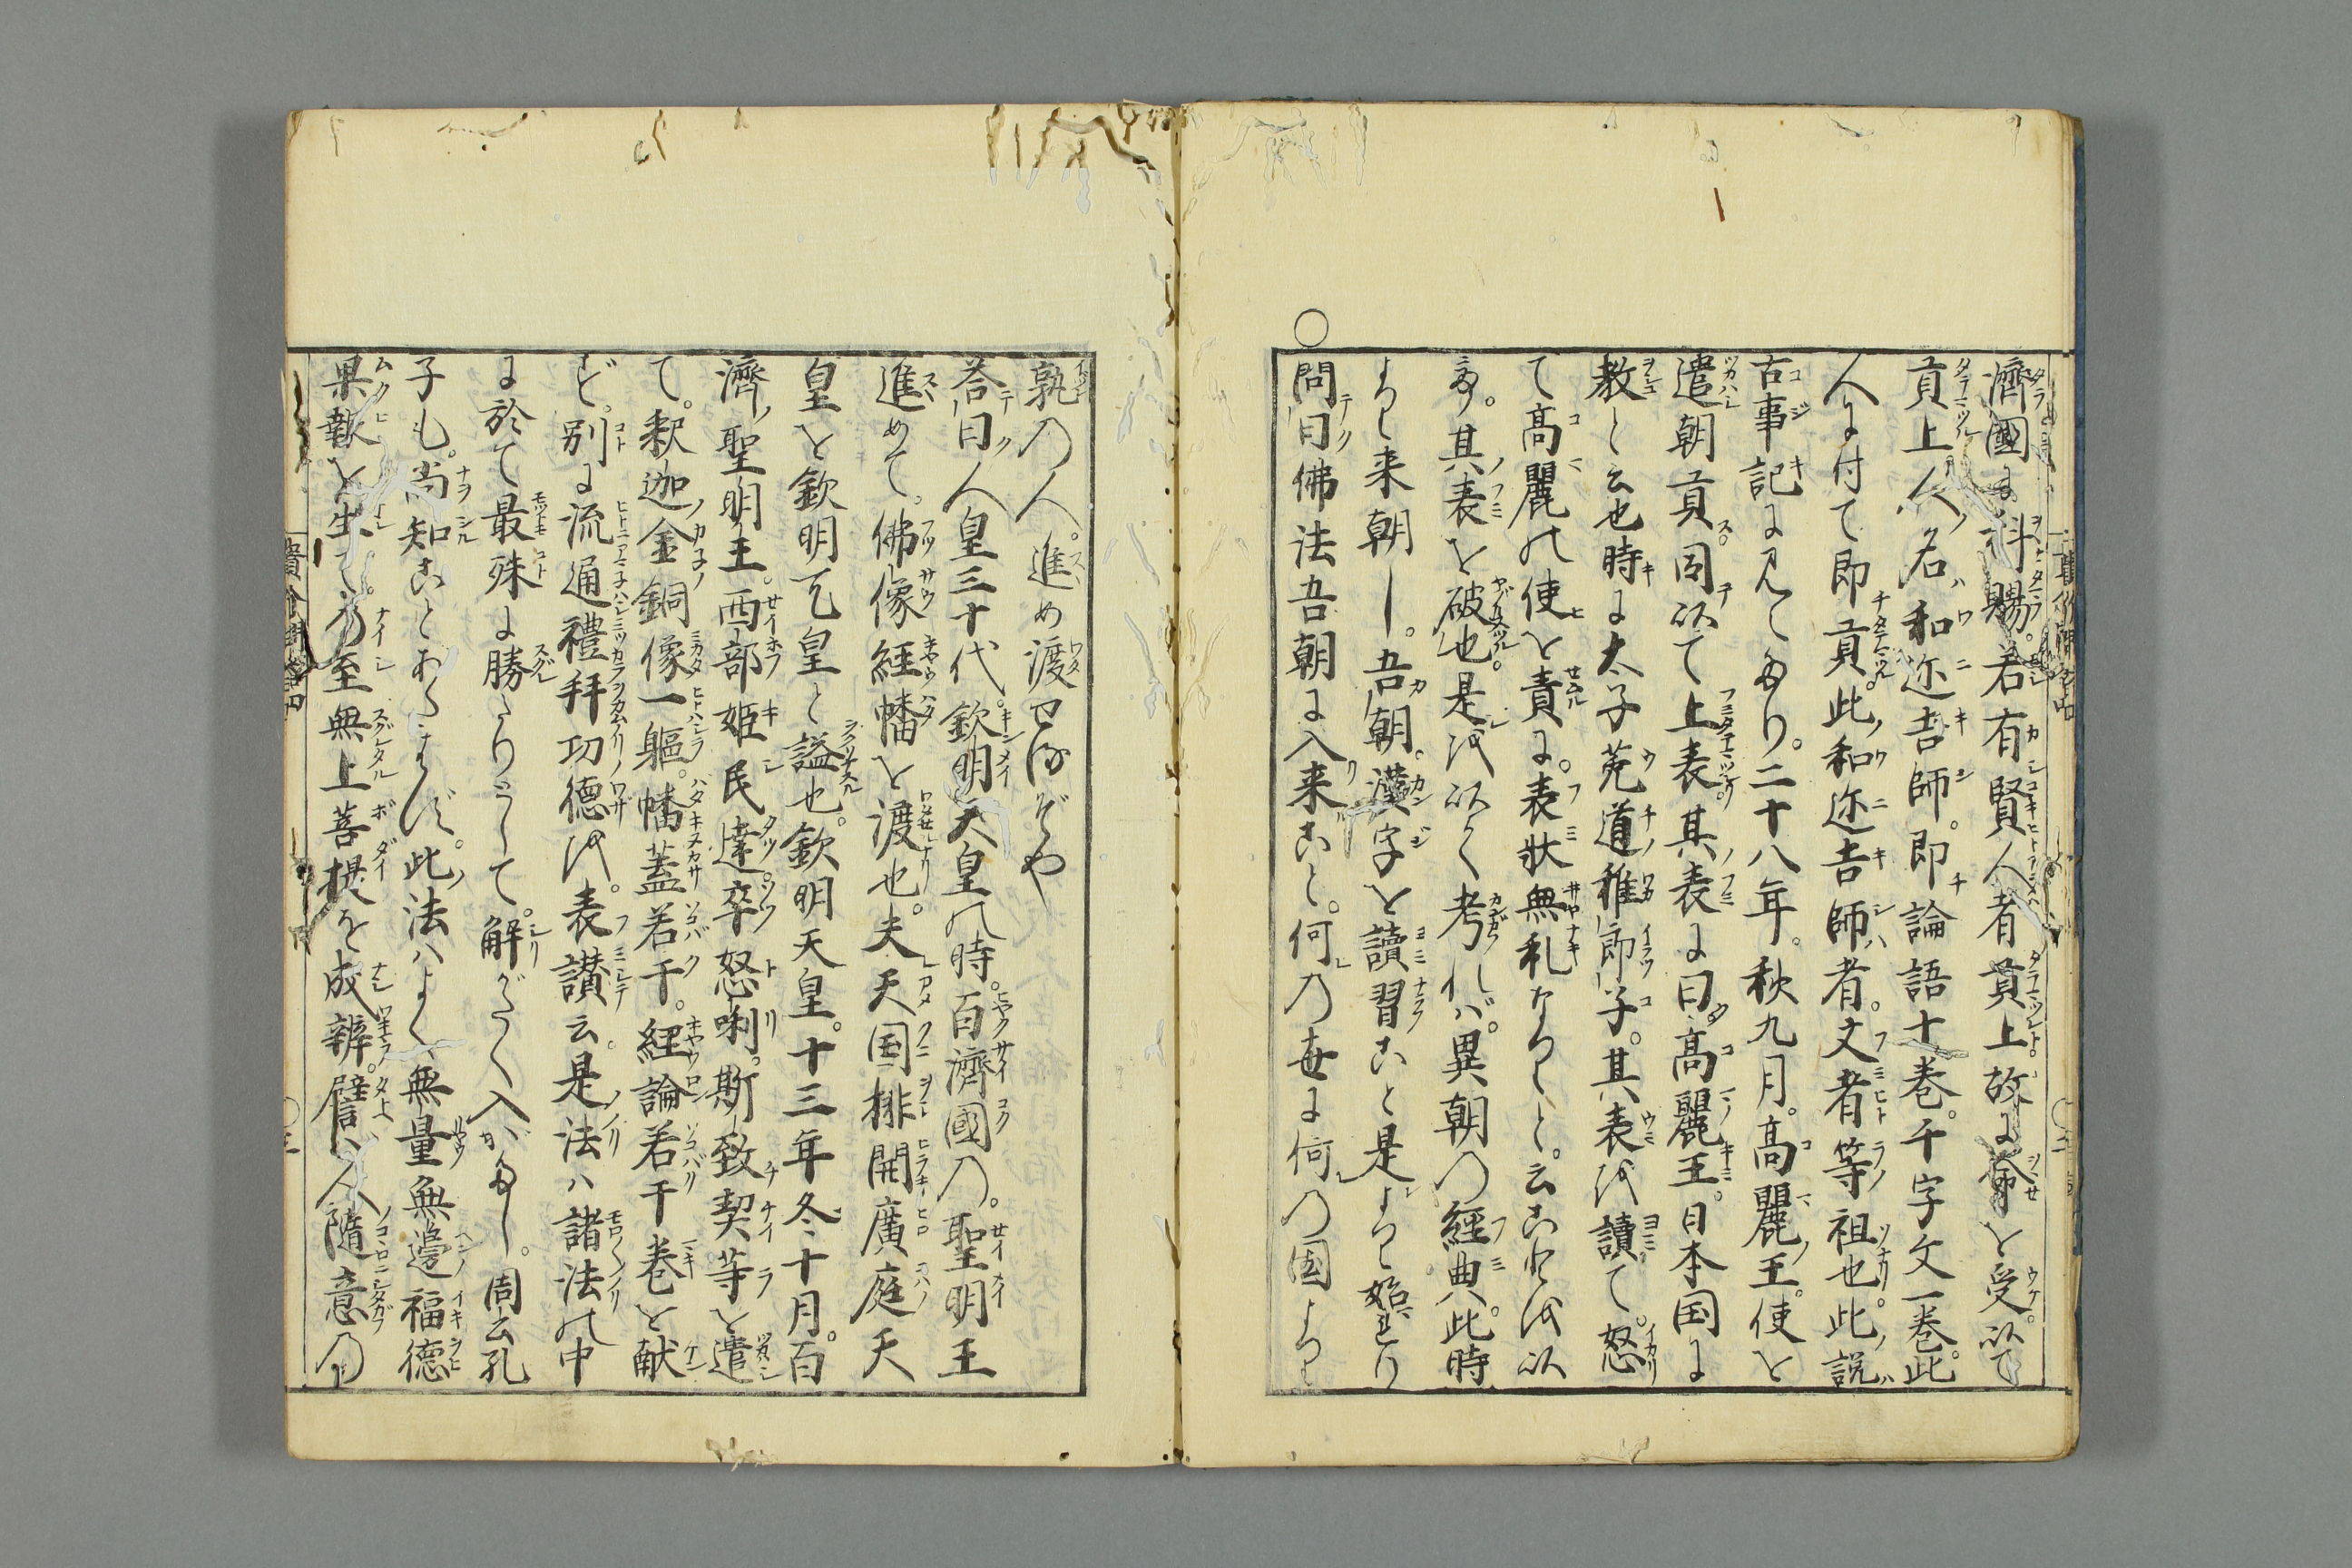 濟國に科賜。若有賢人者貢上。故に命を受。以て
貢上人、名ハ和迩吉師。即論語十巻。千字文一巻。此
人に付て即貢。此和迩吉師ハ者。文者等祖也。此說ハ
古事記に見えたり。二十八年。秋九月。高麗王。使を
遣朝貢。因以て上表其表に曰高麗王。日本国に
教と云也時に太子菟道稚郎子。其表を讀て。怒
て高麗の使を責に。表狀無礼なりと。云〻を以
其表を破也。是を以て考れば。異朝の經典。此時
より来朝し。吾朝。漢字を讀習こと是より始まれり
○問曰佛法吾朝に入来こと。何の世に何の国より
孰の人。進め渡せるぞや
荅曰人皇三十代。欽明天皇の時。百濟國の。聖明王
進めて。佛像経幡を渡也。夫天国排開廣庭天
皇を欽明天皇と謚也。欽明天皇。十三年冬十月。百
濟ノ聖明王。西部姫氏達卒怒唎斯致契等を遣
て。釈迦金銅像一軀。幡蓋若干。經論若干巻を献
ず。別に流通禮拜功德を。表讃云。是法ハ諸法の中
に於て最殊に勝たりとして。解がたく入がたし。周公孔
子も。尚知ことあたはず。此法ハよく無量無邊福德
果報を生て。乃至無上菩提を成辨。譬ハ人隨意の